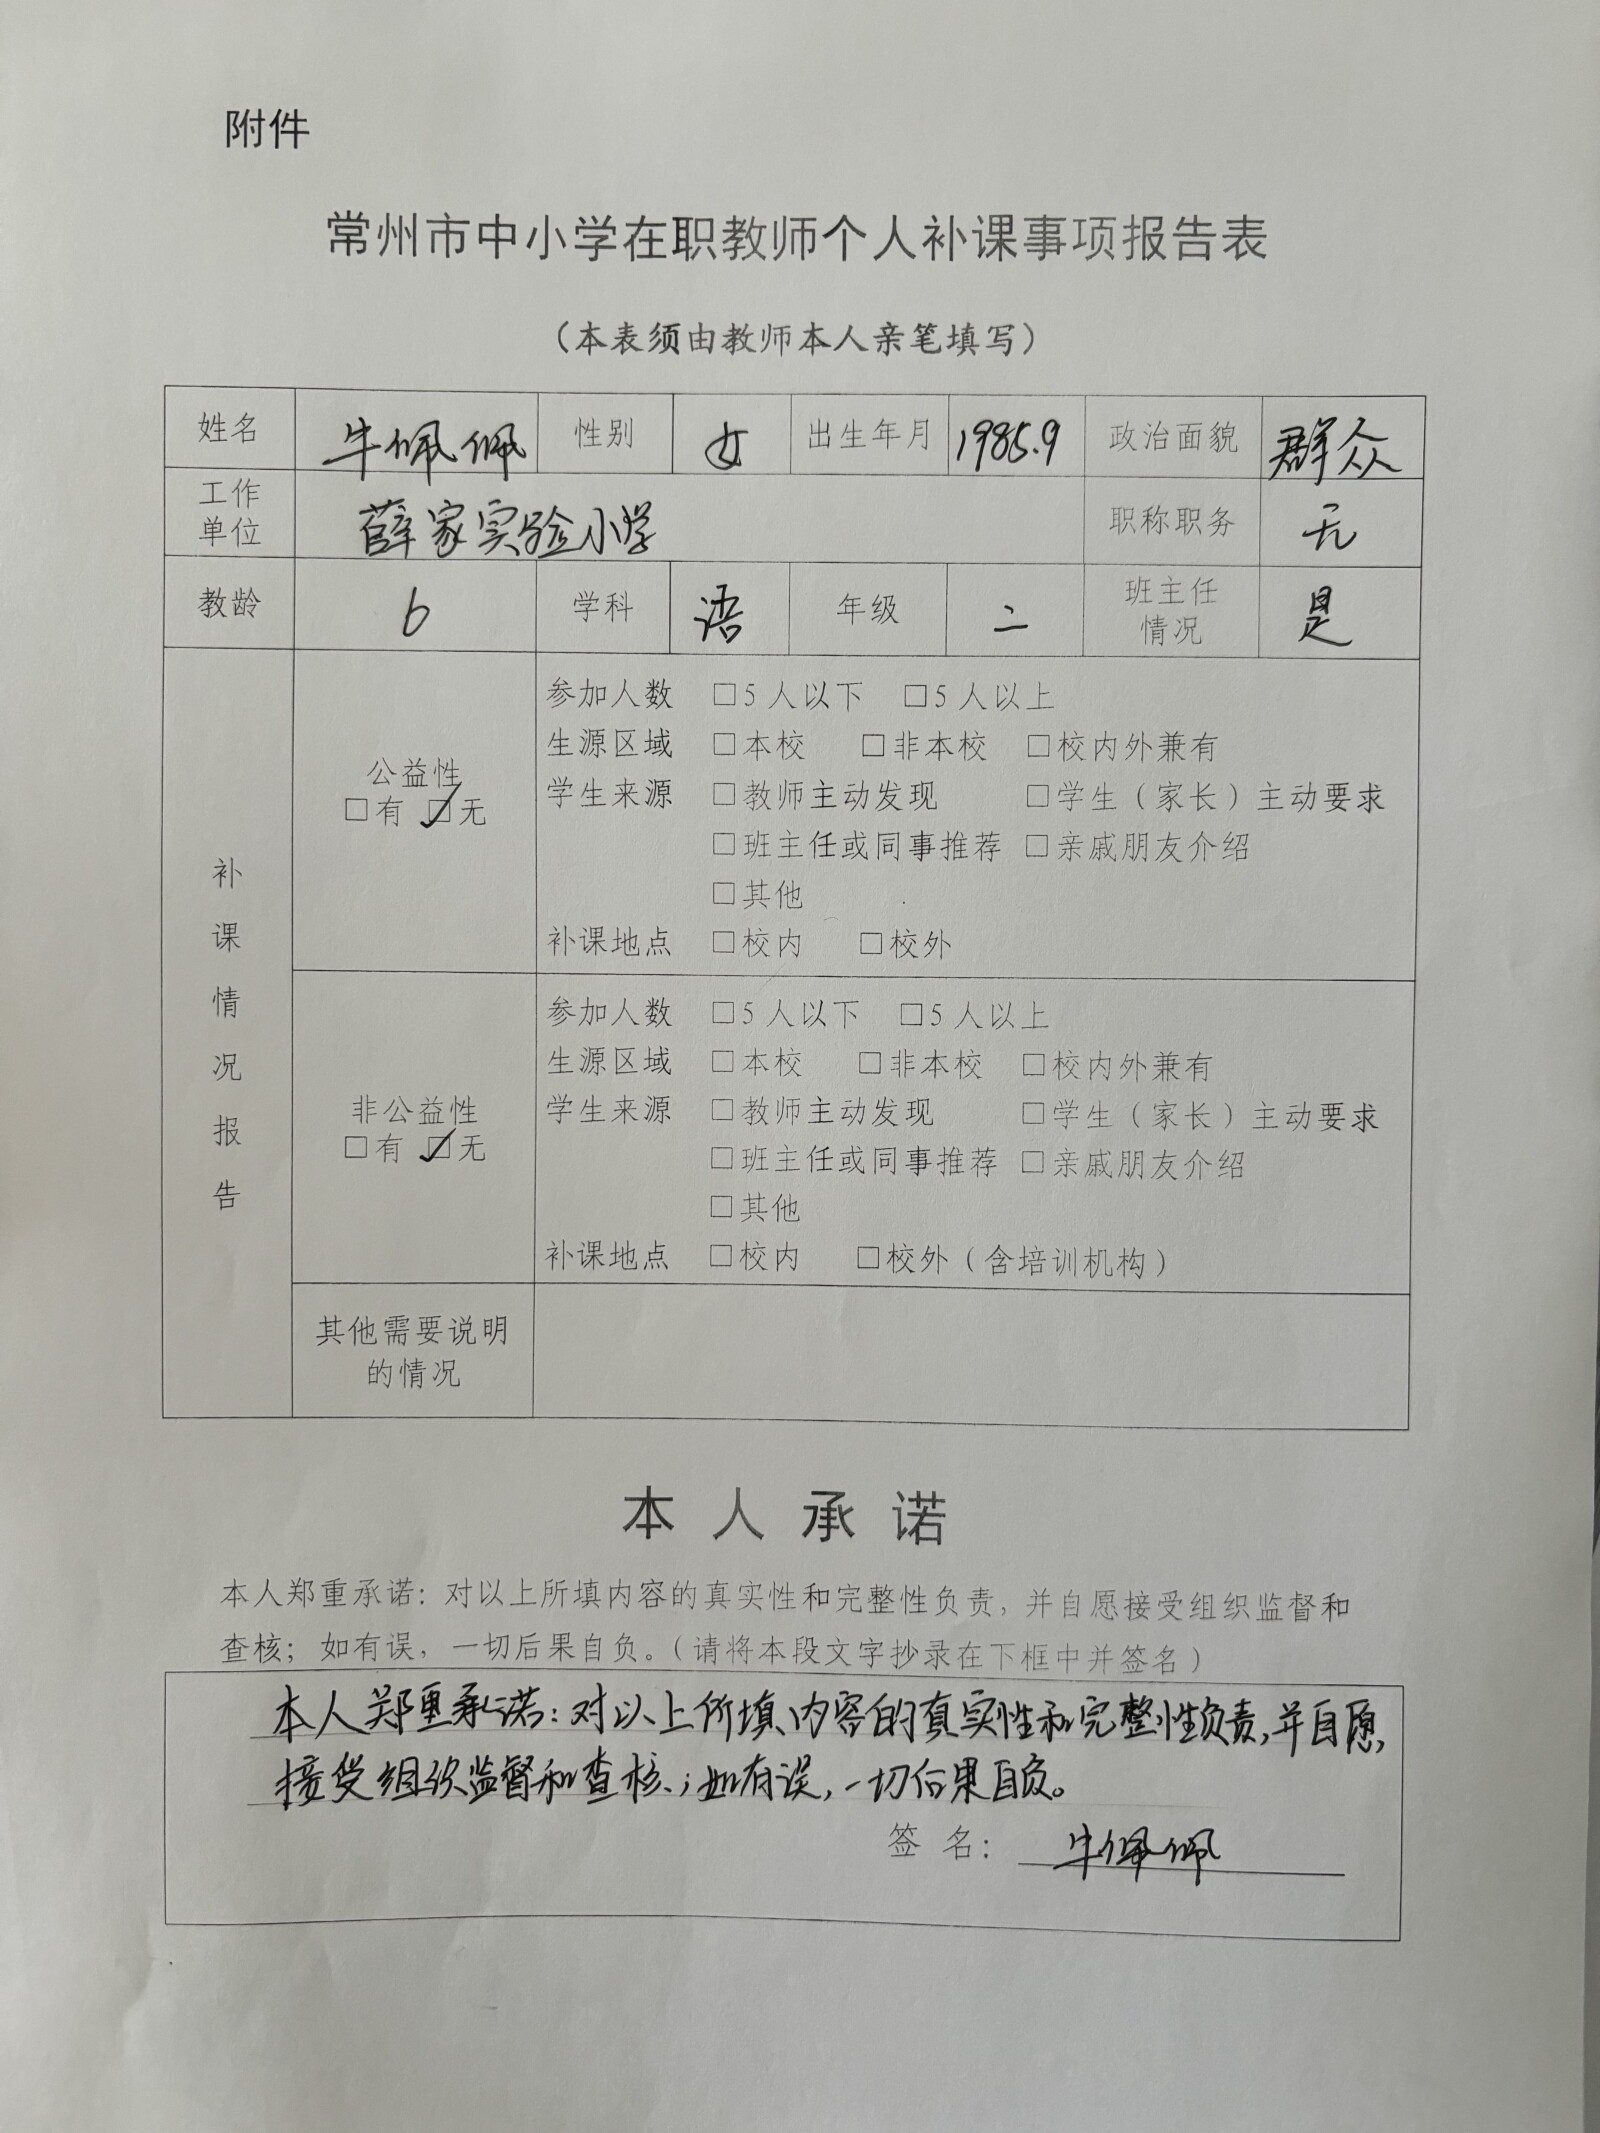 附件
常州市中小学在职教师个人补课事项报告表
（本表须由教师本人亲笔填写）
姓名 牛佩佩 性别 女 出生年月 1985.9 政治面貌 群众
工作单位 薛家实验小学 职称职务 无
教龄 6 学科 语 年级 二 班主任情况 是
补课情况报告
公益性
□有 ☑无
参加人数 □5人以下 □5人以上
生源区域 □本校 □非本校 □校内外兼有
学生来源 □教师主动发现 □学生（家长）主动要求
□班主任或同事推荐 □亲戚朋友介绍
□其他
补课地点 □校内 □校外
非公益性
□有 ☑无
参加人数 □5人以下 □5人以上
生源区域 □本校 □非本校 □校内外兼有
学生来源 □教师主动发现 □学生（家长）主动要求
□班主任或同事推荐 □亲戚朋友介绍
□其他
补课地点 □校内 □校外（含培训机构）
其他需要说明
的情况
本人承诺
本人郑重承诺：对以上所填内容的真实性和完整性负责，并自愿接受组织监督和
查核；如有误，一切后果自负。（请将本段文字抄录在下框中并签名）
本人郑重承诺：对以上所填内容的真实性和完整性负责，并自愿
接受组织监督和查核；如有误，一切后果自负。
签名：牛佩佩